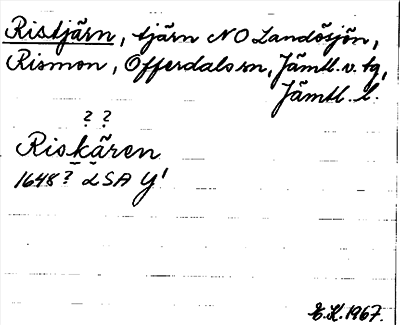 Ristjärn, tjärn NO Landösjön,
Rismon, Offerdals sn, Jämtl. v. tg,
Jämtl. l.
? ?
Riskären
1648? LSA Y'
E.K. 1967.